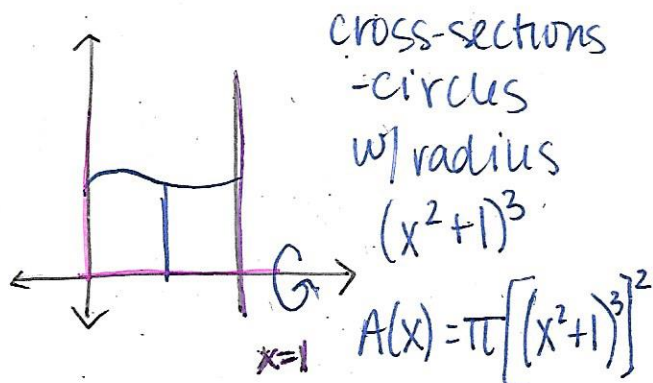 cross-sections
-circles
w/ radius
(x²+1)³
A(x) = π[(x²+1)³]²
x=1